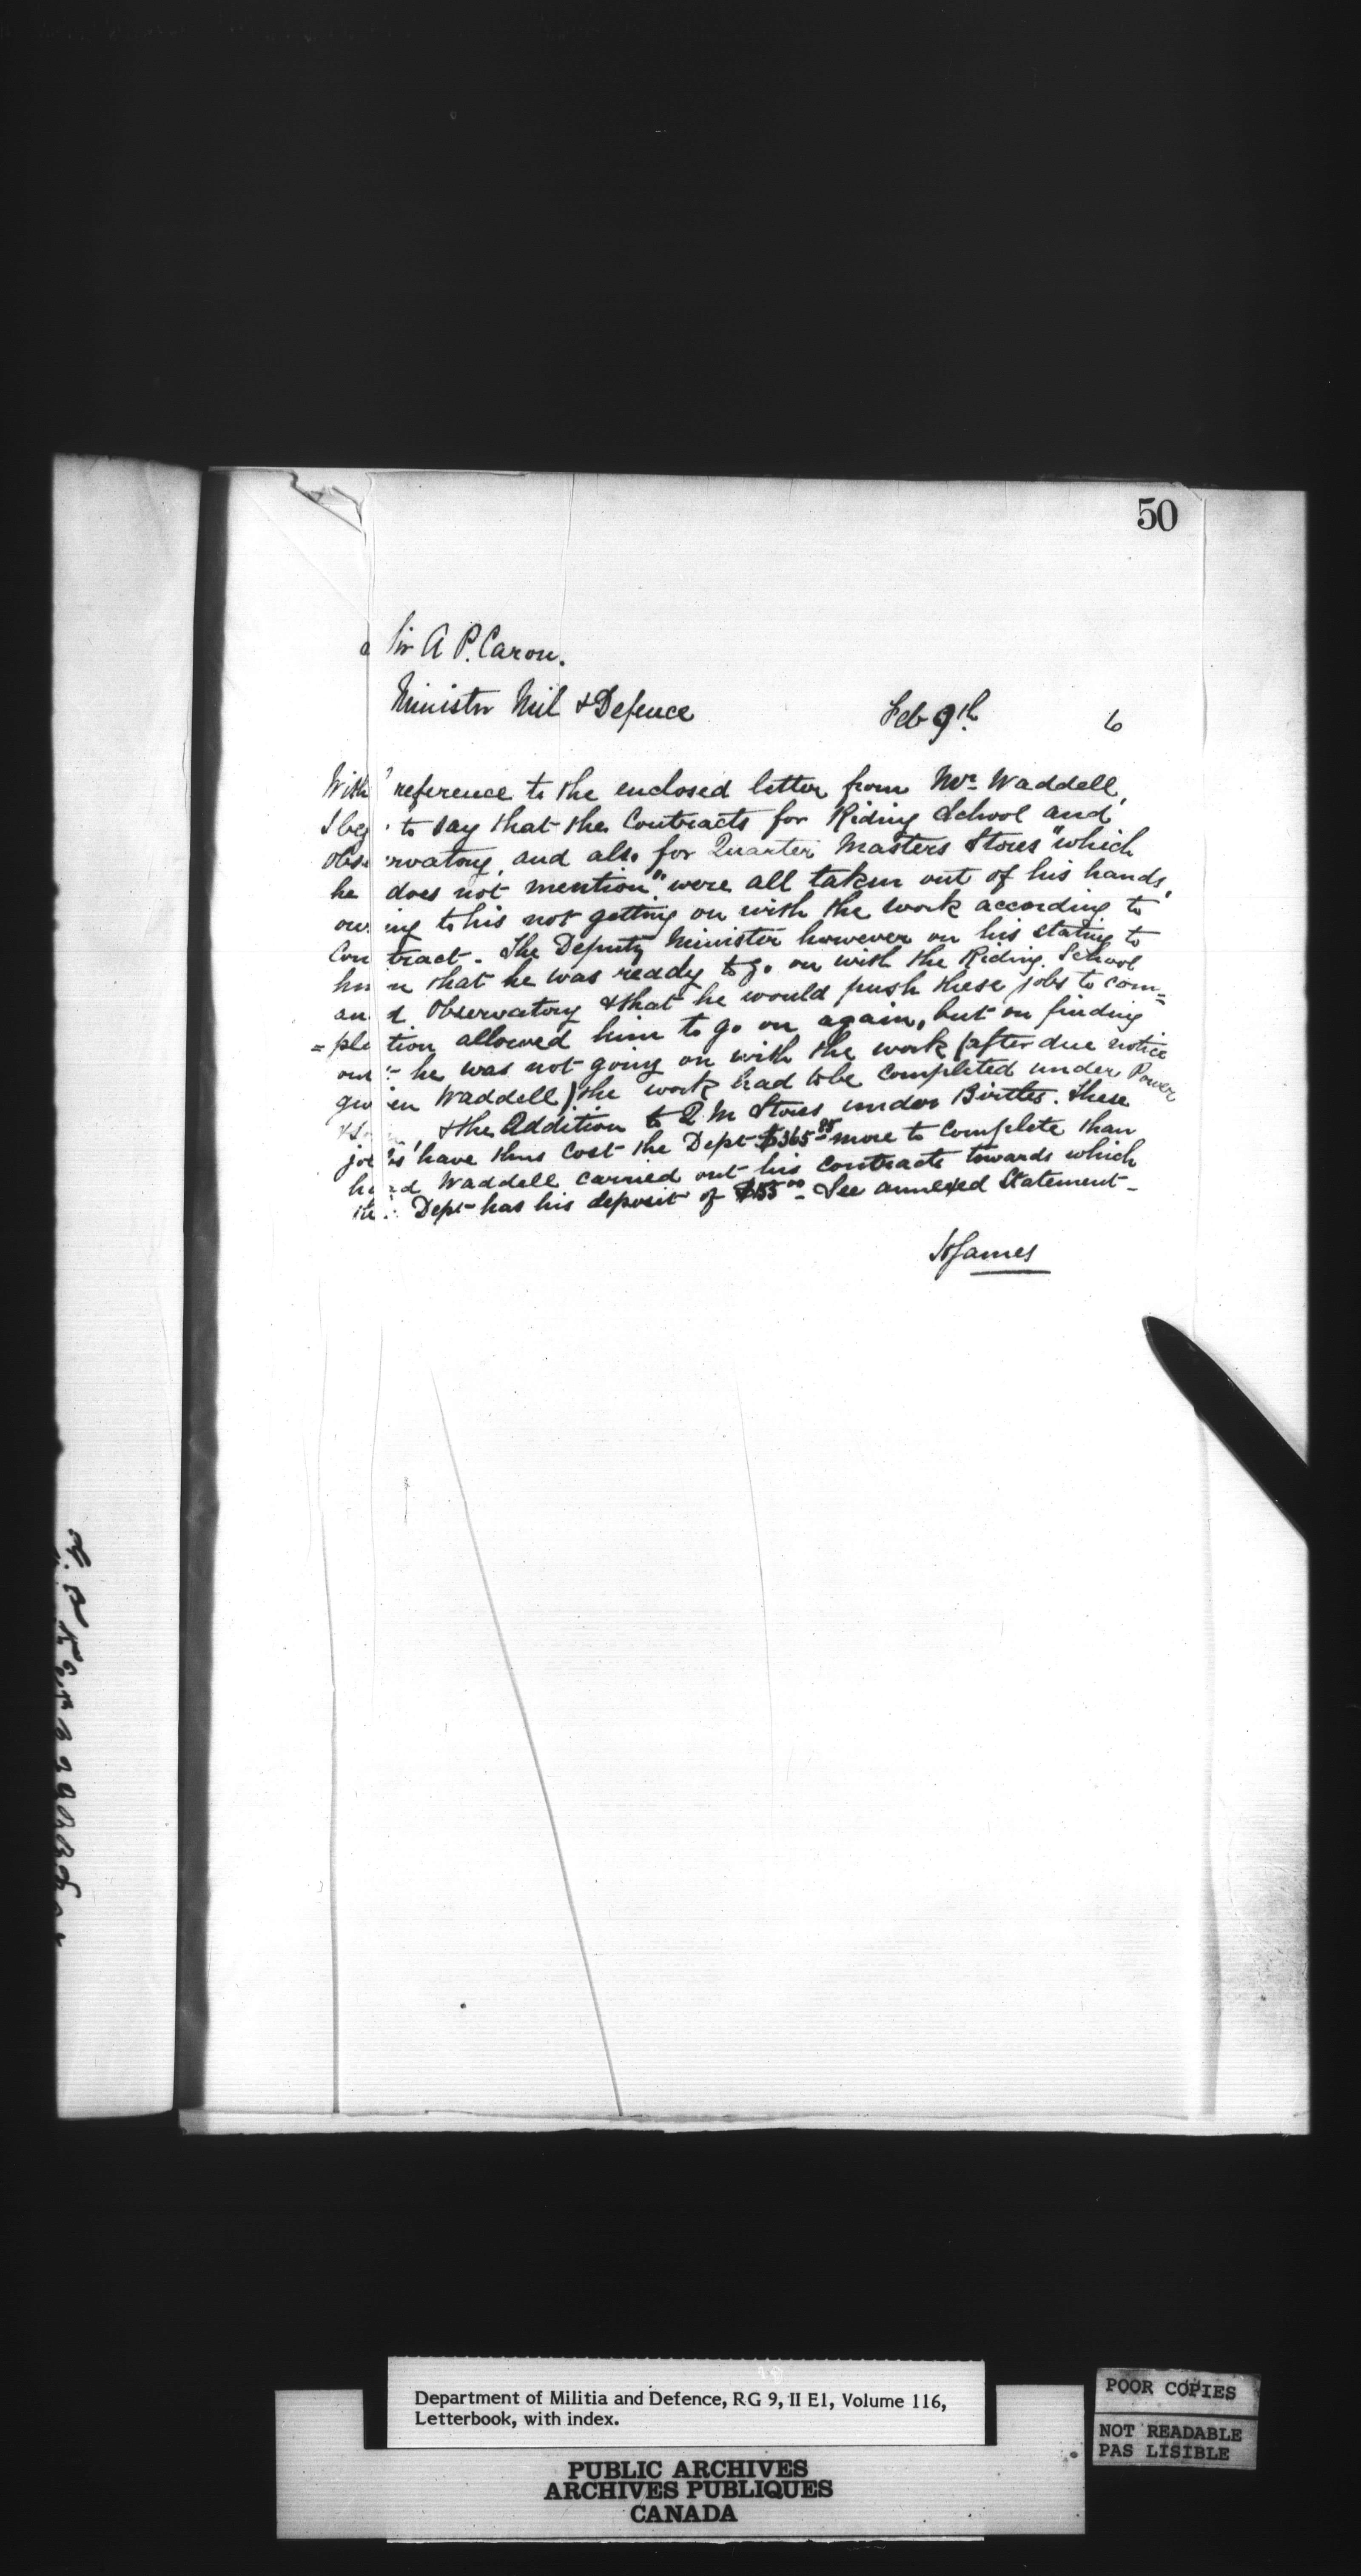 50
Sir A P. Caron.
Minister Mil & Defence
Feb 9th. 6
With reference to the enclosed letter from Mr. Waddell,
I beg to say that the Contracts for Riding School and
observatory, and also for Quarter Masters Stores "which
he does not mention" were all taken out of his hands,
owing to his not getting on with the work according to
Contract. The Deputy Minister however on his stating to
him that he was ready to go on with the Riding School
and Observatory & that he would push these jobs to com=
=pletion allowed him to go on again, but on finding
out he was not going on with the work (after due notice
given Waddell) the work had to be completed under Power
& the Addition to Q M Stores under Birtles. These
jobs have thus cost the Dept $365.85 more to complete than
had Waddell carried out his contracts towards which
the Dept has his deposit of $155.00 See annexed Statement-
HJames
Department of Militia and Defence, RG 9, II E1, Volume 116,
Letterbook, with index.
PUBLIC ARCHIVES
ARCHIVES PUBLIQUES
CANADA
POOR COPIES
NOT READABLE
PAS LISIBLE